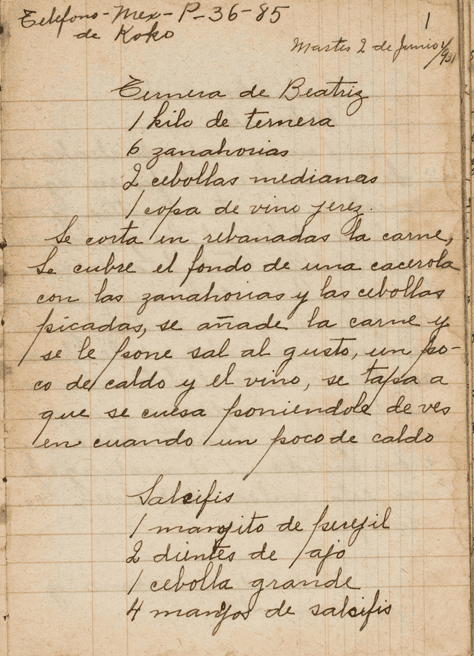 Telefono-Mex-P-36-85
de Koko
1
Martes 2 de Junio/931
Ternera de Beatriz
1 kilo de ternera
6 zanahorias
2 cebollas medianas
1 copa de vino jerez.
Se corta en rebanadas la carne,
Se cubre el fondo de una cacerola
con las zanahorias y las cebollas
picadas, se añade la carne y
se le pone sal al gusto, un po-
co de caldo y el vino, se tapa a
que se cuesa poniendole de ves
en cuando un poco de caldo
Salsifis
1 manojito de perejil
2 dientes de ajo
1 cebolla grande
4 manojos de salsifis